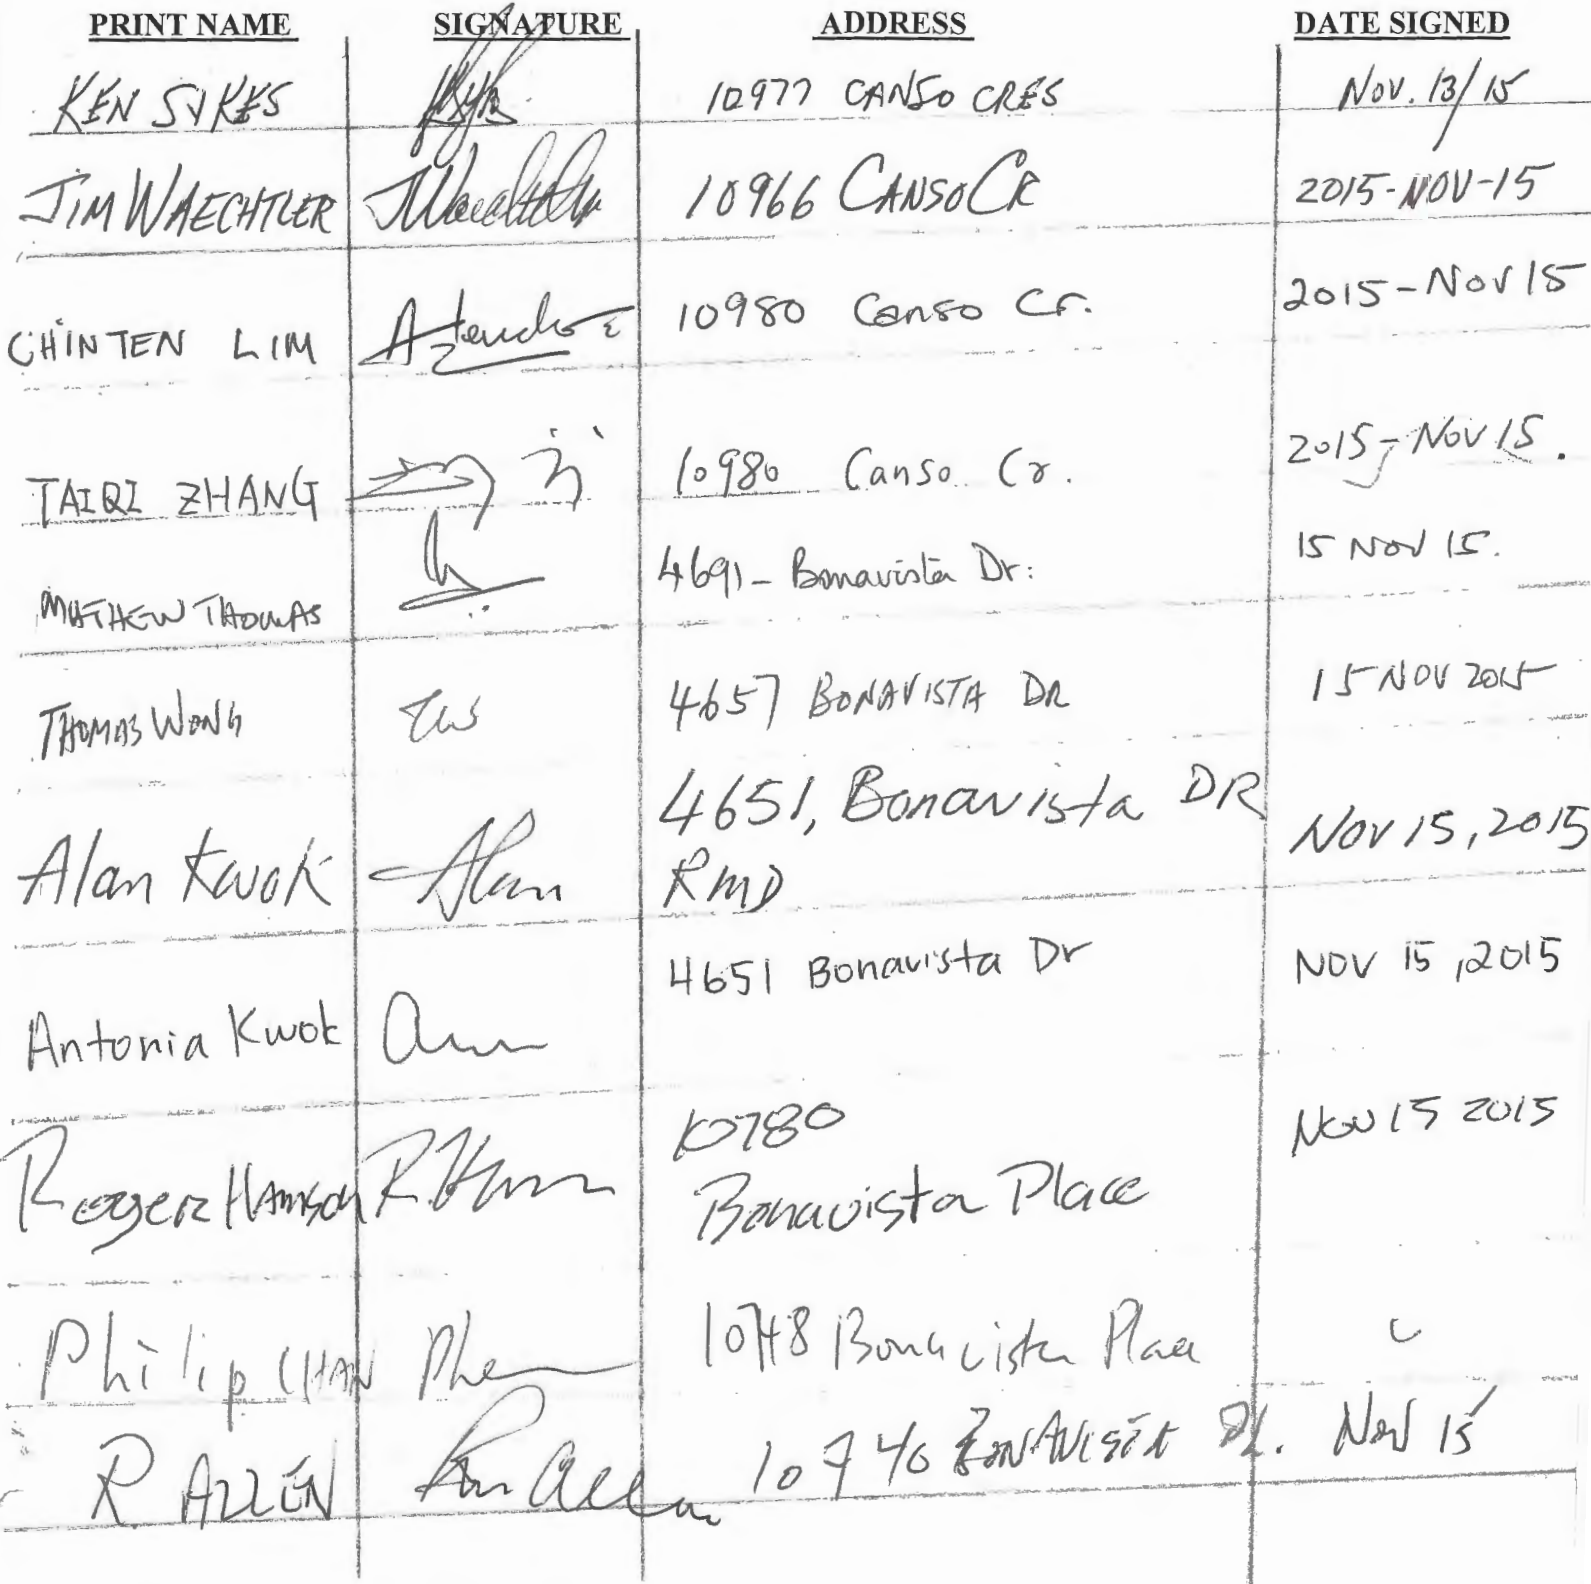 PRINT NAME SIGNATURE ADDRESS DATE SIGNED
KEN SYKES 10977 CANSO CRES Nov. 13/15
JIM WAECHTLER 10966 CANSO CR 2015-NOV-15
CHINTEN LIM 10980 Canso Cr. 2015-Nov 15
TAIQI ZHANG 10980 Canso Cr. 2015-Nov 15.
MATHEW THOMAS 4691- Bonavista Dr. 15 NOV 15.
THOMAS WONG TW 4657 BONAVISTA DR 15 NOV 2015
Alan Kwok Alan 4651, Bonavista DR Nov 15, 2015
RMD
Antonia Kwok 4651 Bonavista Dr NOV 15, 2015
Roger 10780 Nov 15 2015
Bonavista Place
Philip CHAN 10748 Bonavista Place
R ALLEN Ron Allen 10740 BONAVISTA PL. Nov 15